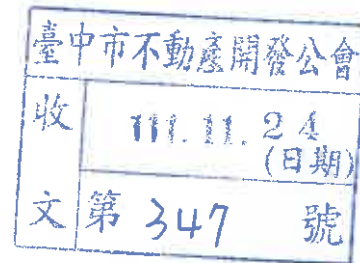 臺中市不動產開發公會
收
111.11.24
(日期)
文 第 347 號